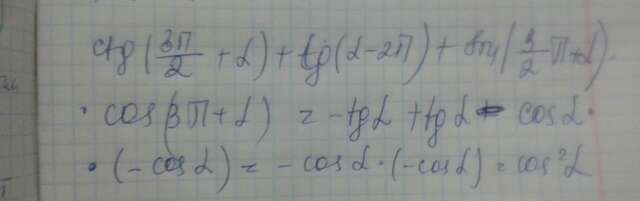 ctg(3π/2 + α) + tg(α - 2π) + sin(3/2 π + α) ·
· cos(3π + α) = -tgα + tgα - cosα ·
· (-cosα) = -cosα · (-cosα) = cos²α